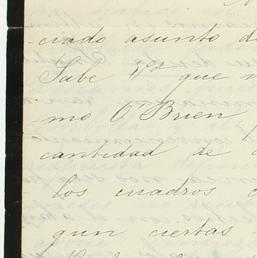 cindo asunto d
Sabe Vd que n
mo O'Brien
cantidad de
los cuadros
gun ciertas